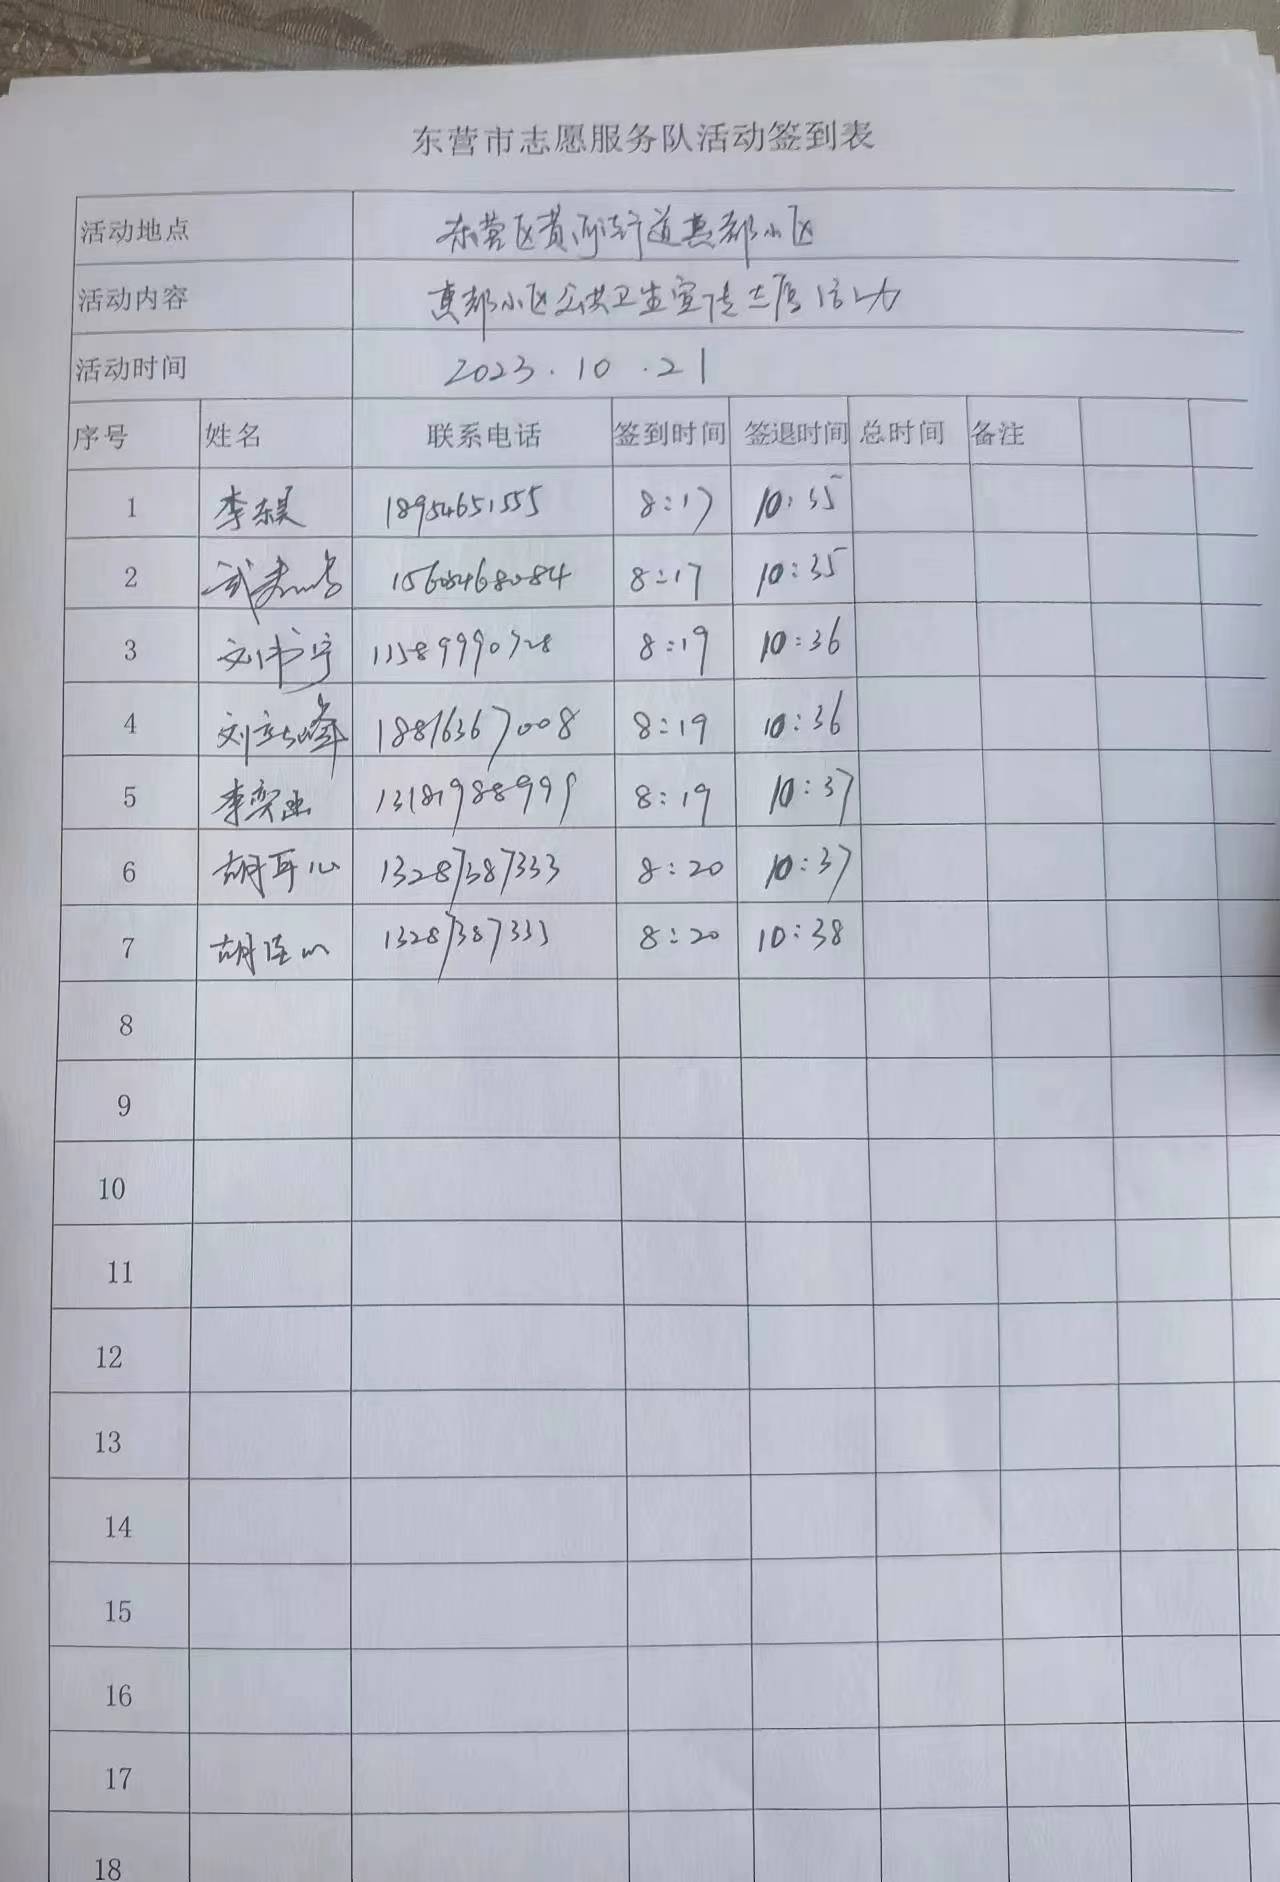 东营市志愿服务队活动签到表
活动地点 东营区黄河街道惠都小区
活动内容 惠都小区公共卫生宣传志愿活动
活动时间 2023.10.21
序号 姓名 联系电话 签到时间 签退时间 总时间 备注
1 李东昊 18954651555 8:17 10:35
2 武 8:17 10:35
3 刘书宁 8:19 10:36
4 刘 峰 18816367008 8:19 10:36
5 李奕 13181988999 8:19 10:37
6 胡 心 13287387333 8:20 10:37
7 胡 13287387333 8:20 10:38
8
9
10
11
12
13
14
15
16
17
18